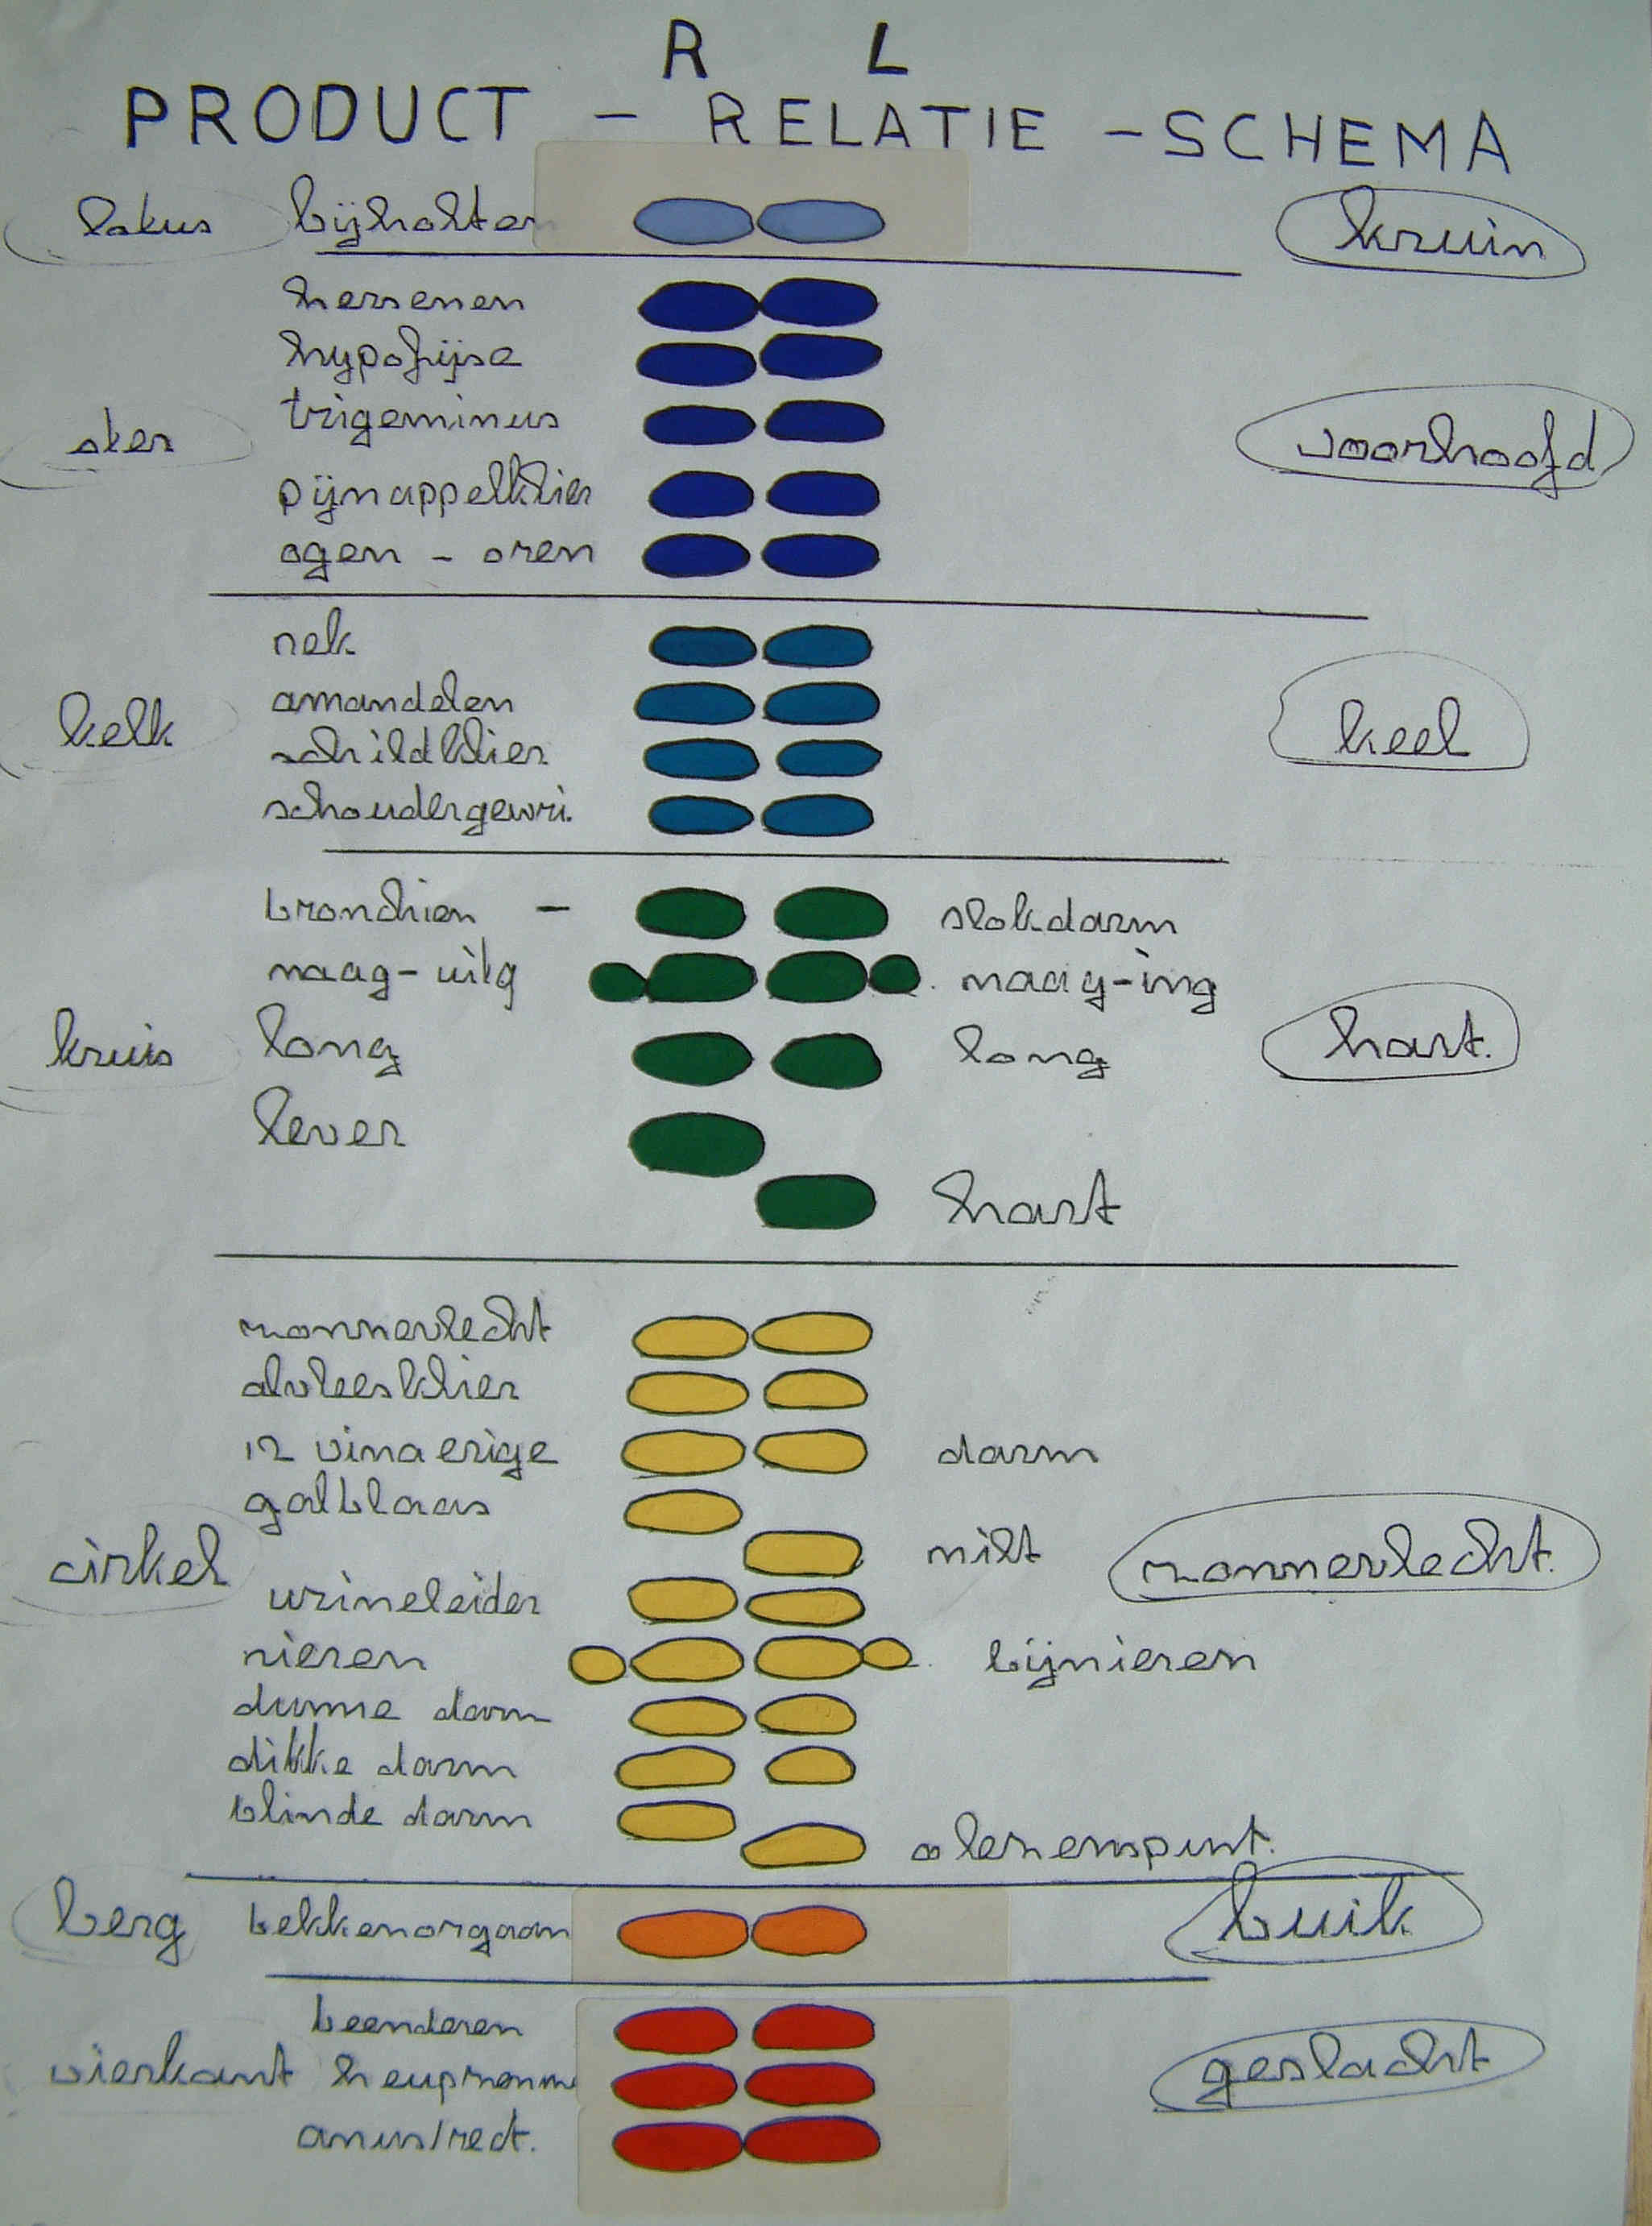 R L
PRODUCT - RELATIE - SCHEMA
lotus bijholten kruin
hersenen
hypofijse
trigeminus
ster voorhoofd
pijnappelklier
ogen - oren
nek
amandelen
kelk keel
schildklier
schoudergewri.
bronchien - slokdarm
maag-uitg maag-ing
kruis long long hart.
lever
hart
zonnevlecht
alvleesklier
12 vingerige darm
galblaas
cirkel milt zonnevlecht.
urineleider
nieren bijnieren
dunne darm
dikke darm
blinde darm
berg bekkenorgaan buik
beenderen
vierkant geslacht
anus/rect.